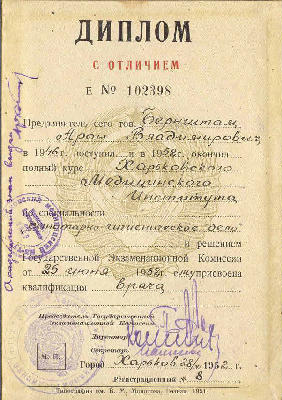 ДИПЛОМ
С ОТЛИЧИЕМ
Е № 102398
Предъявитель сего тов. Бернштам
Арон Владимирович
в 1946 г. поступил и в 1952 г. окончил
полный курс Харьковского
Медицинского
Института
по специальности
"Санитарно-гигиеническое дело"
и решением
Государственной Экзаменационной Комиссии
от 25 июня 1952 г. ему присвоена
квалификация врача
Председатель Государственной
Экзаменационной Комиссии
Директор
Секретарь
Город Харьков 28/VI 1952 г.
Регистрационный № 8
М. П.